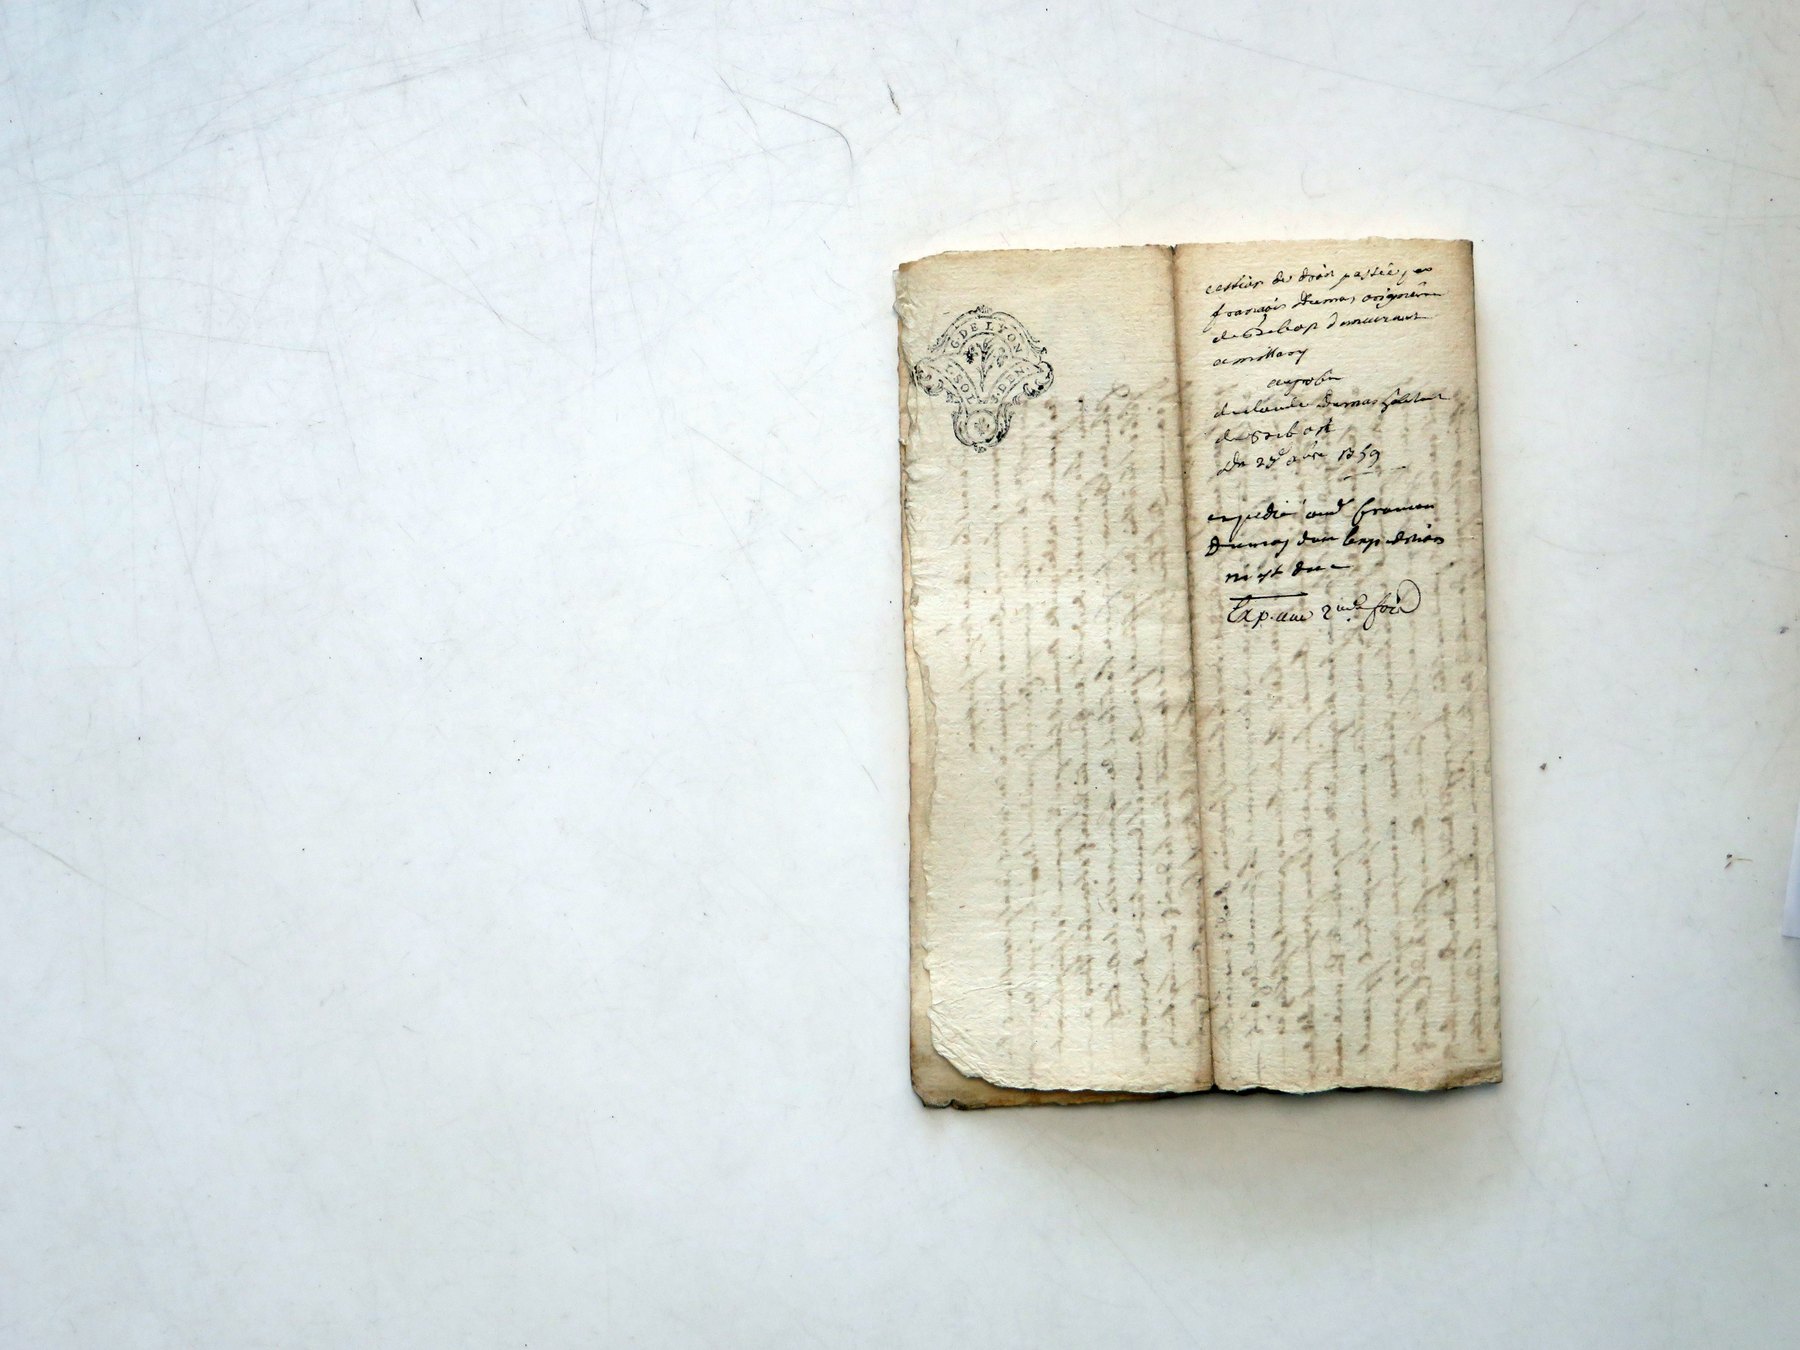 G. DE LYON
SOL
S. DEN
cession de droit passée par
françois Dumas originaire
de demeurant
a millery
au profit
de claude Dumas habitant
de
du 1759
expedié aud françois
Dumas dont lexpedition
m'est due
Exp. une 2nde. fois